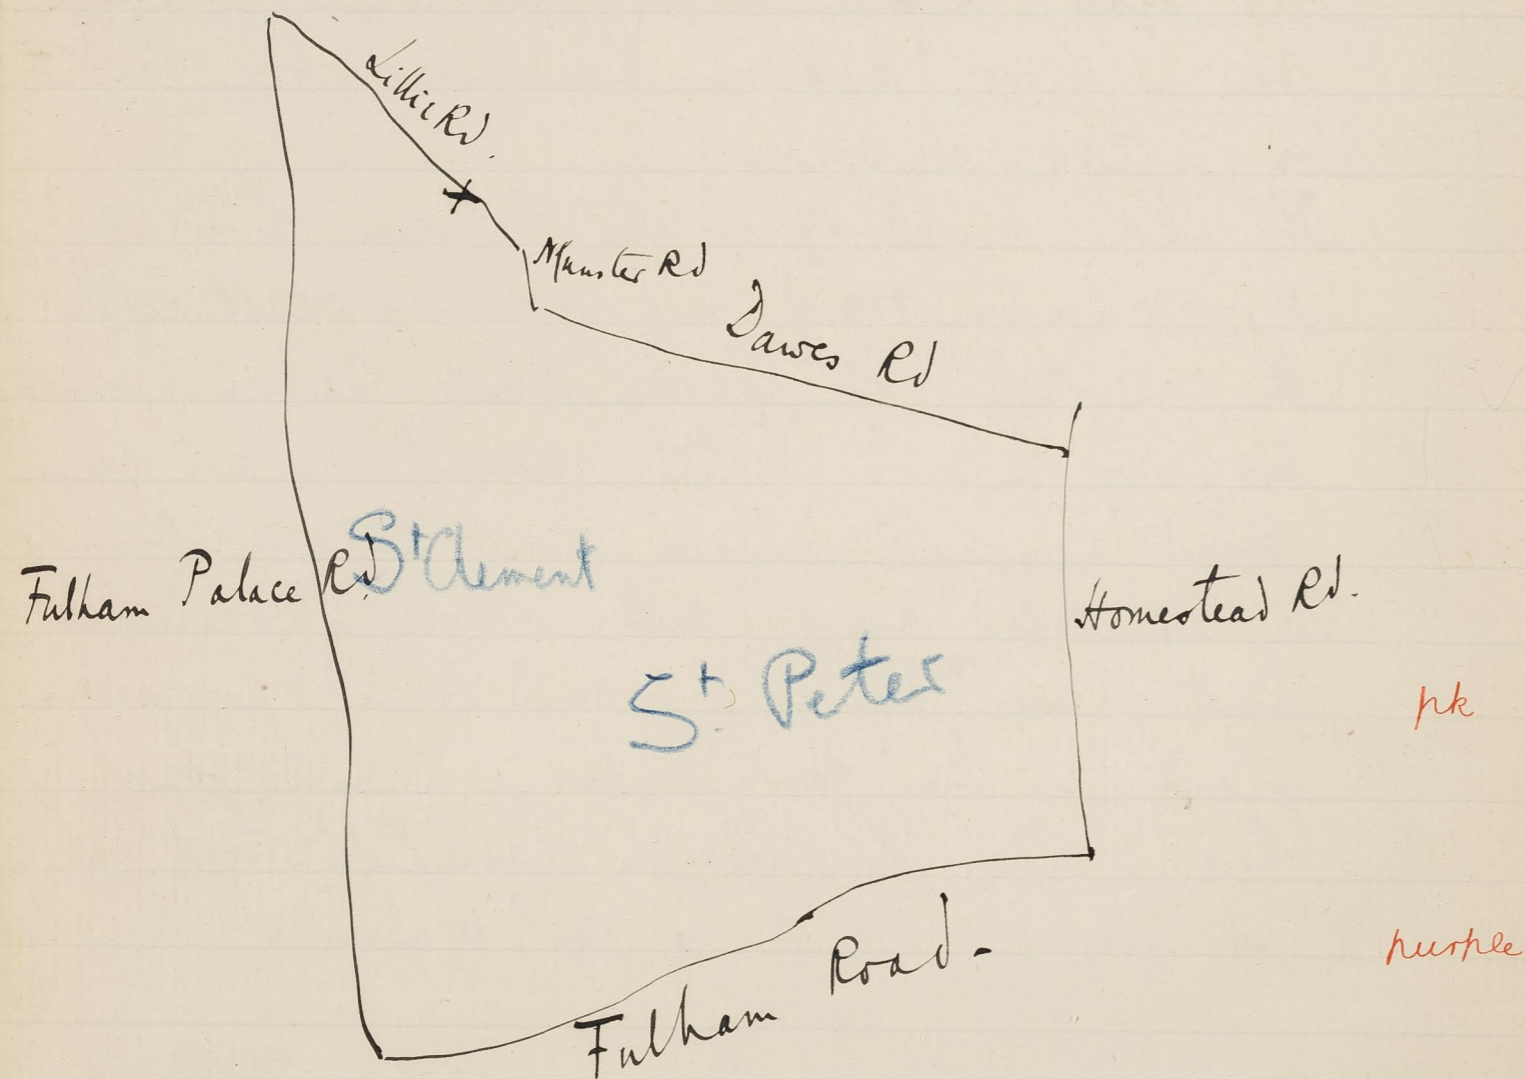 Lillie Rd.
Munster Rd
Dawes Rd
Fulham Palace Rd.
St Clement
Homestead Rd.
St. Peter
pk
purple
Fulham Road -